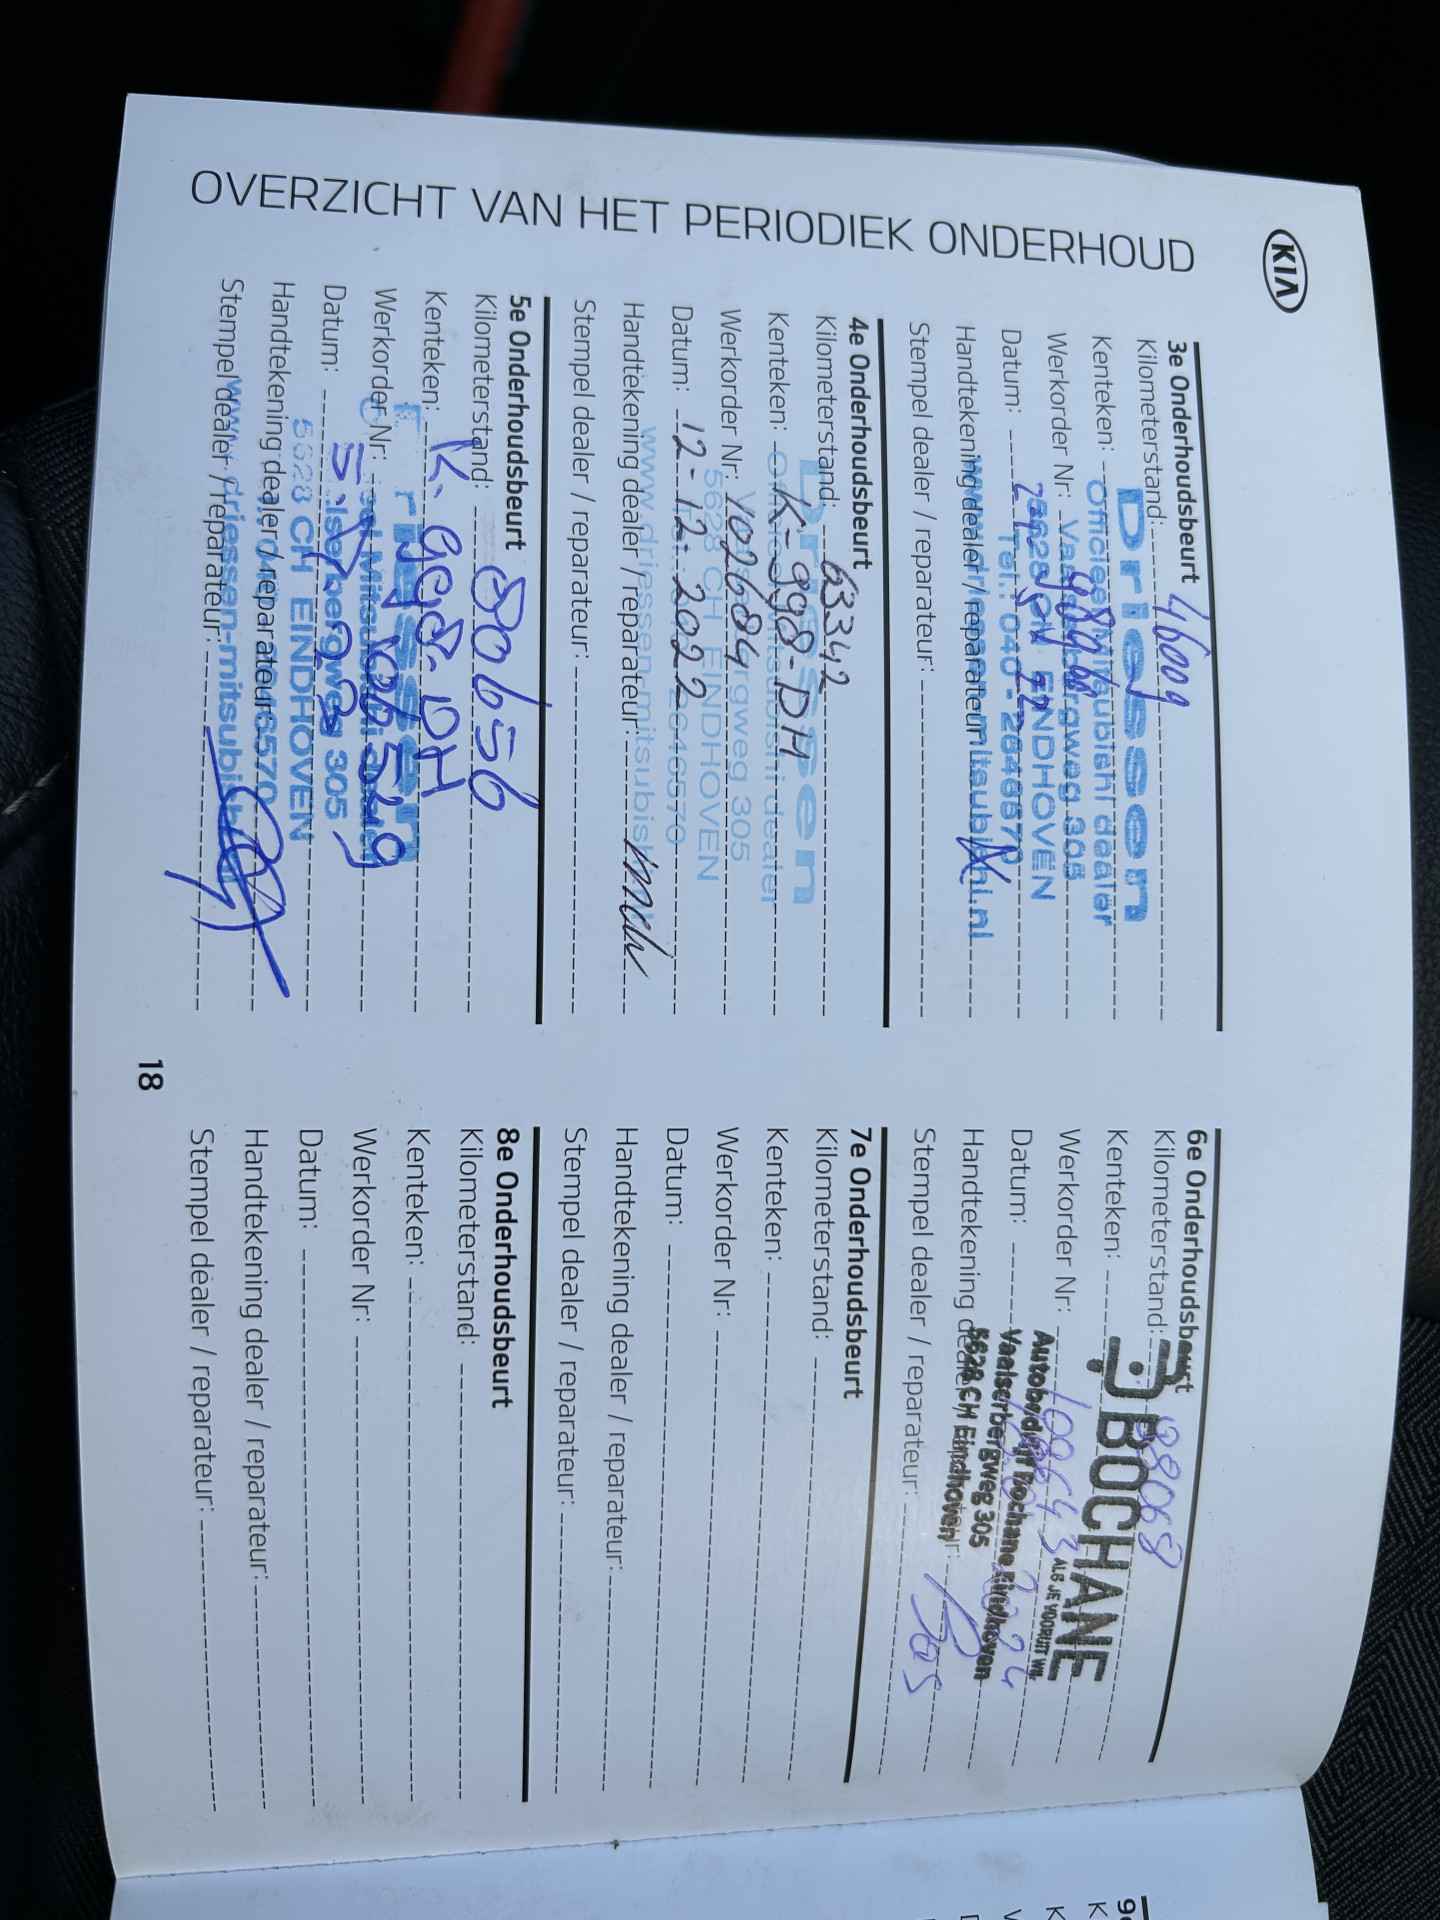 KIA
OVERZICHT VAN HET PERIODIEK ONDERHOUD
3e Onderhoudsbeurt
Kilometerstand: 46009
Kenteken:
Werkorder Nr:
Datum:
Handtekening dealer / reparateur:
Stempel dealer / reparateur:
Driessen
Officieel Mitsubishi dealer
Vaalserbergweg 305
5628 CH EINDHOVEN
Tel.: 040-2646570
www.driessen-mitsubishi.nl
4e Onderhoudsbeurt
Kilometerstand: 63342
Kenteken: K-998-DH
Werkorder Nr: 102684
Datum: 12-12-2022
Handtekening dealer / reparateur:
Stempel dealer / reparateur:
Driessen
Officieel Mitsubishi dealer
Vaalserbergweg 305
5628 CH EINDHOVEN
Tel.: 040-2646570
www.driessen-mitsubishi.nl
5e Onderhoudsbeurt
Kilometerstand: 80656
Kenteken: K.998.DH
Werkorder Nr: 106549
Datum:
Handtekening dealer / reparateur:
Stempel dealer / reparateur:
Driessen
Vaalserbergweg 305
5628 CH EINDHOVEN
www.driessen-mitsubishi.nl
18
6e Onderhoudsbeurt
Kilometerstand: 98068
Kenteken:
Werkorder Nr:
Datum:
Handtekening dealer / reparateur:
Stempel dealer / reparateur:
BOCHANE
ALS JE VOORUIT WIL
Autobedrijf Bochane Eindhoven
Vaalserbergweg 305
5628 CH Eindhoven
7e Onderhoudsbeurt
Kilometerstand:
Kenteken:
Werkorder Nr:
Datum:
Handtekening dealer / reparateur:
Stempel dealer / reparateur:
8e Onderhoudsbeurt
Kilometerstand:
Kenteken:
Werkorder Nr:
Datum:
Handtekening dealer / reparateur:
Stempel dealer / reparateur: